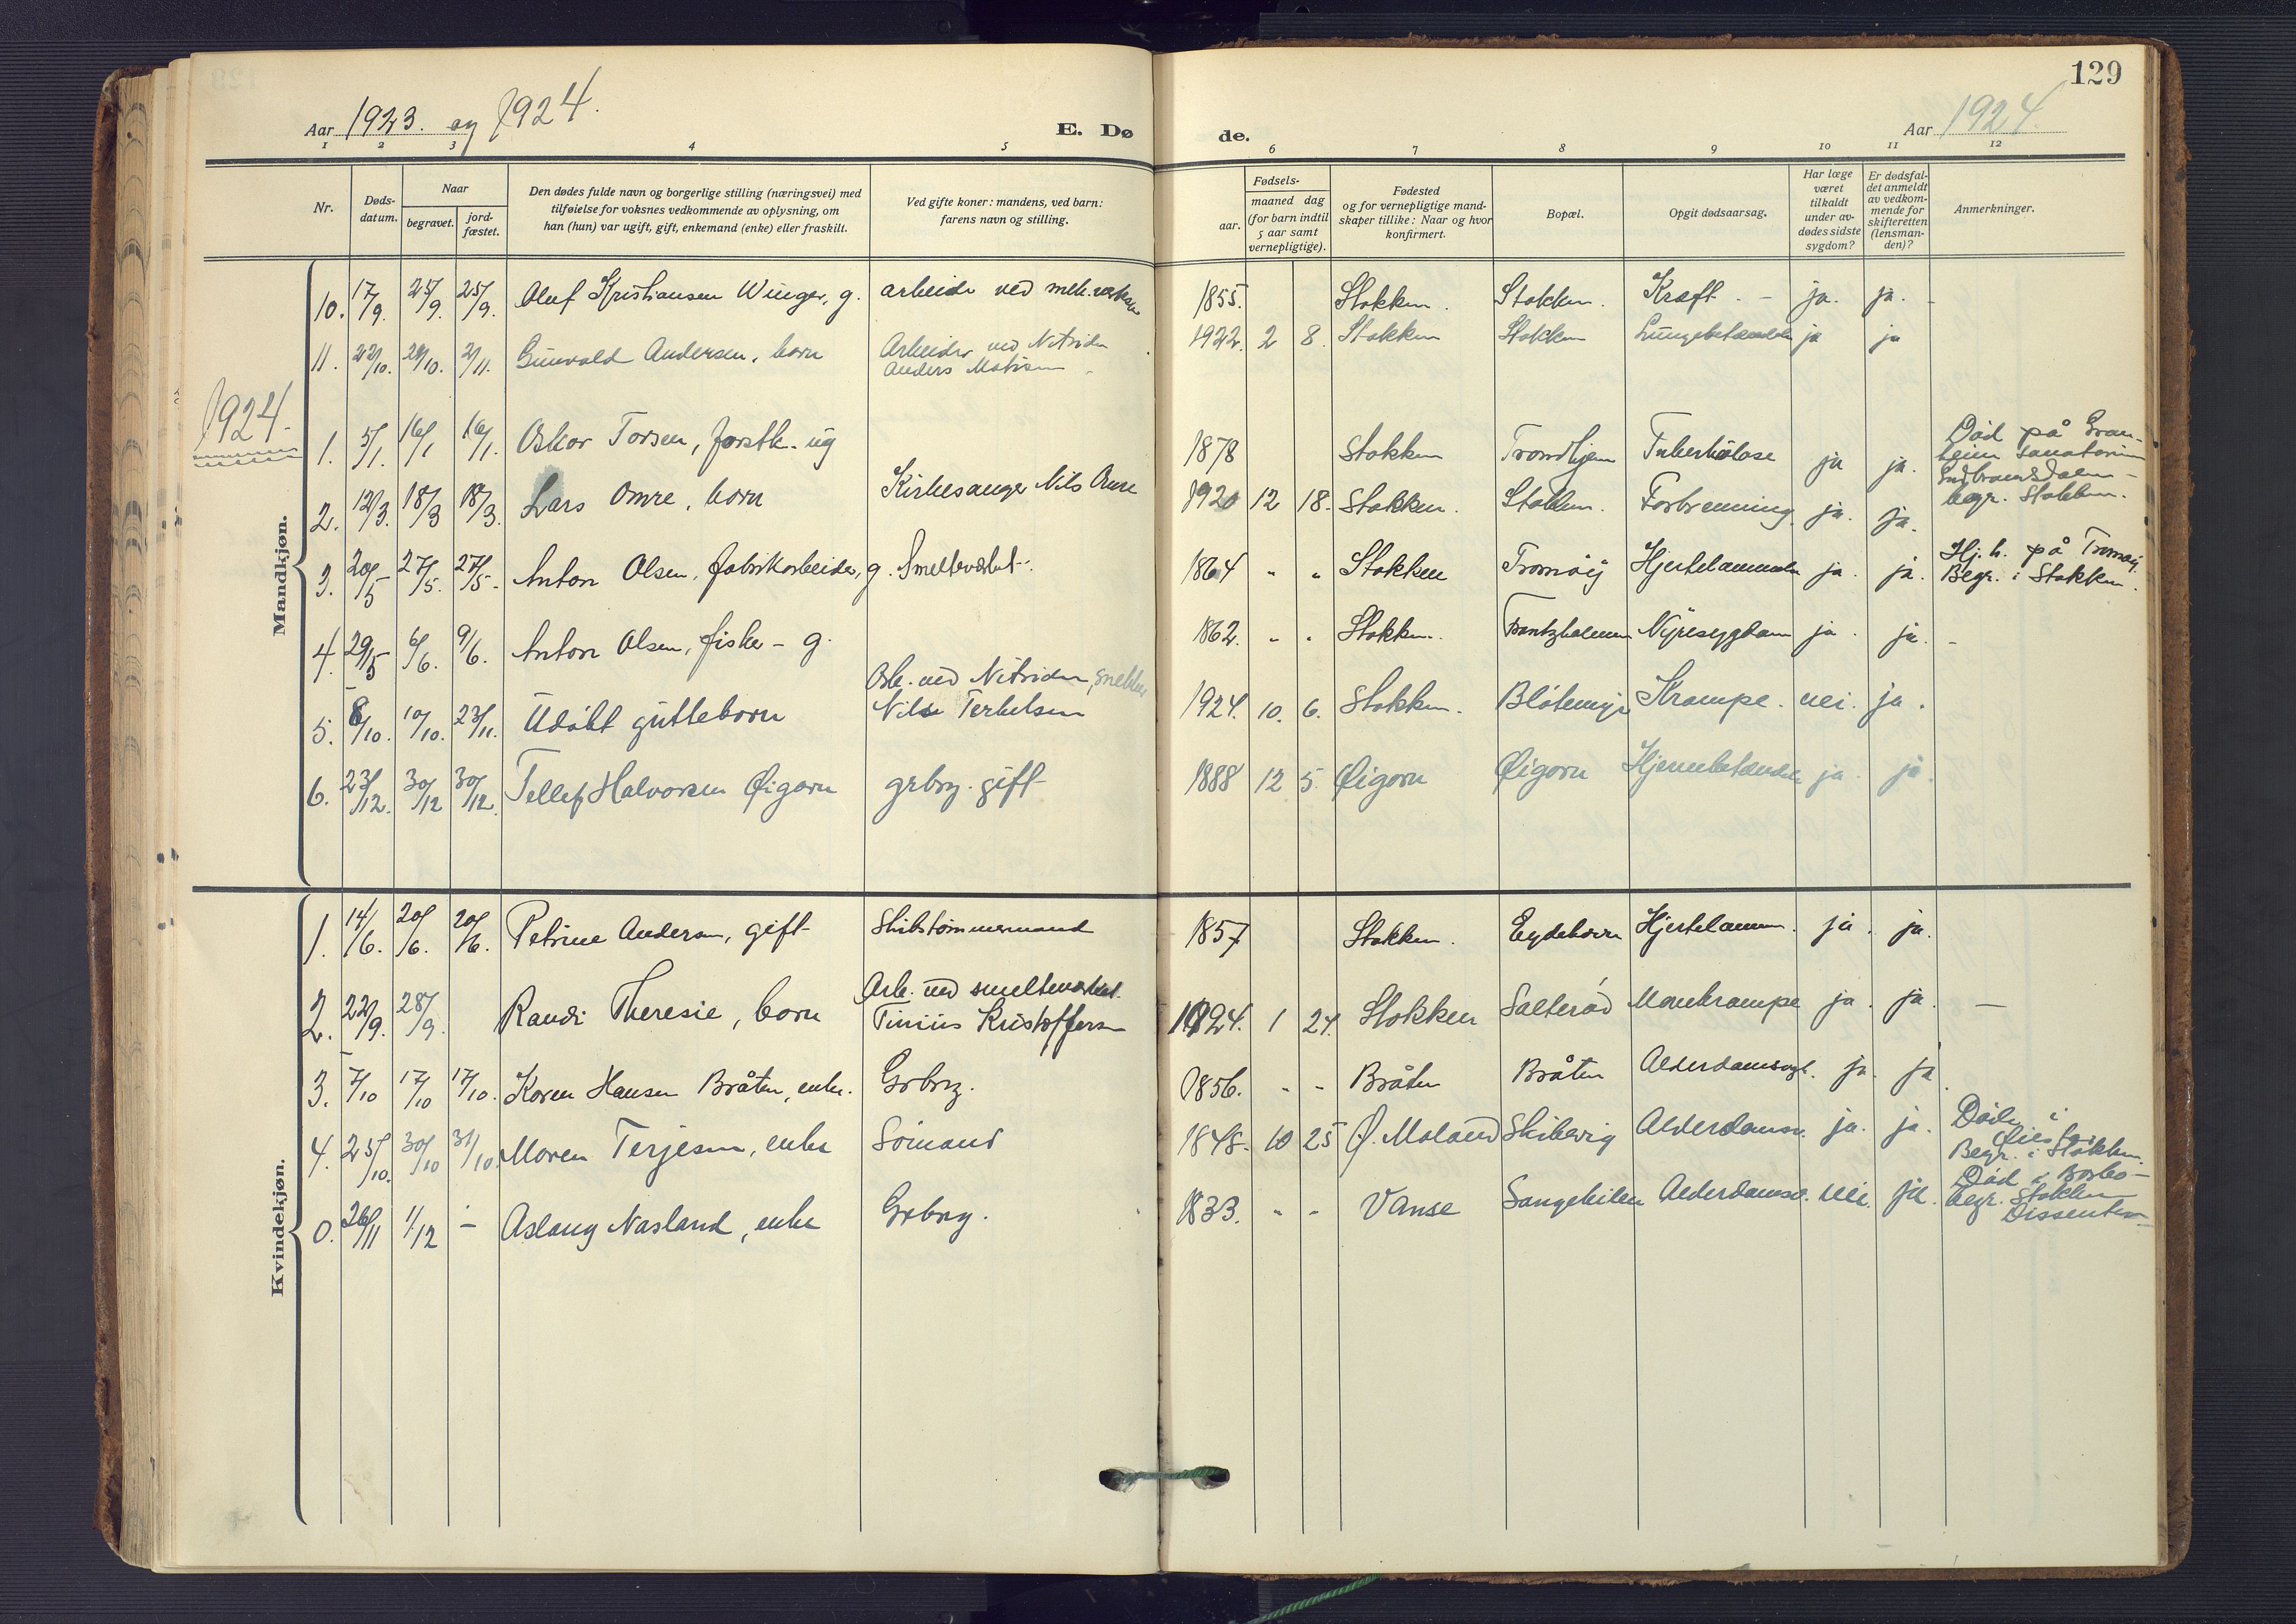 129
Aar 1923. og 1924.
E. Dø
de.
Aar 1924
1 2 3 4 5 6 7 8 9 10 11 12
Nr.
Døds-
datum.
Naar
begravet.
jord-
fæstet.
Den dødes fulde navn og borgerlige stilling (næringsvei) med
tilføielse for voksnes vedkommende av oplysning, om
han (hun) var ugift, gift, enkemand (enke) eller fraskilt.
Ved gifte koner: mandens, ved barn:
farens navn og stilling.
Fødsels-
aar.
maaned dag
(for barn indtil
5 aar samt
vernepligtige).
Fødested
og for vernepligtige mand-
skaper tillike: Naar og hvor
konfirmert.
Bopæl.
Opgit dødsaarsag.
Har læge
været
tilkaldt
under av-
dødes sidste
sygdom?
Er dødsfal-
det anmeldt
av vedkom-
mende for
skifteretten
(lensman-
den)?
Anmerkninger.
Mandkjøn.
10. 17/9. 25/9. 25/9. Oluf Kristiansen Winger, g. arbeider ved mek. 1855. Stokken. Stokken. Kræft. - ja. ja. -
11. 22/10. 29/10. 2/11. Gunvald Andersen, barn Arbeider ved Nitriden
Anders 1922. 2 8. Stokken Stokken Lungebetændelse ja ja
1924.
1. 5/1. 16/1 16/1. Oskar Torsen, forstk. ug 1878 Stokken Trondhjem Tuberkulose ja ja. Död på Gran-
heim Sanatorium
Gudbrandsdalen -
begr. Stokken.
2. 12/3. 18/3 18/3. Lars Omre, barn Kirkesanger Nils Omre 1920 12 18. Stokken. Stokken. Forbrenning. ja. ja.
3. 20/5 27/5. 27/5. Anton Olsen, fabrikarbeider, g. Smelteverket. 1864 " " Stokken Tromöy Hjertelammelse ja. ja. Hj. h. på Tromöy.
Begr. i Stokken.
4. 29/5 6/6. 9/6. Anton Olsen, fisker - g. 1862. " " Stokken. Frantzholmen Nyresygdom ja. ja. -
5. 8/10. 10/10. 23/11. Udöbt guttebarn Arb. ved Nitriden, snekker
Nils Terkelsen 1924. 10. 6. Stokken. Blåtemyr Krampe. nei. ja.
6. 23/12. 30/12 30/12. Tellef Halvorsen Øigarn grbrg. gift 1888 12 5. Øigarn Øigarn Hjernebetændelse ja. ja.
Kvindekjøn.
1. 14/6. 20/6. 20/6. Petrine Andersen, gift Skibstömmermand 1857 Stokken. Eydehavn Hjertelammelse. ja. ja.
2. 22/9. 28/9. Randi Theresie, barn Arb. ved smelteverket.
Tinius Kristoffersen 1924. 1 24. Stokken Salteröd Mavekrampe ja. ja. -
3. 7/10 17/10 17/10. Karen Hansen Bråten, enke. Grbrg. 1856. " - Bråten Bråten Alderdomssygd. ja. ja.
4. 25/10. 30/10 31/10. Maren Terjesen, enke Sömand 1848. 10 25 Ø. Moland Skibevig Alderdomssv. ja. ja. Död i
Øiestad
Begr. i Stokken.
0. 26/11 1/12 - Aslaug Nasland, enke Grbrg. 1833. " - Vanse Sangekilen Alderdomssv. nei. ja. Död i Barbo -
begr. Stokken
Dissenter